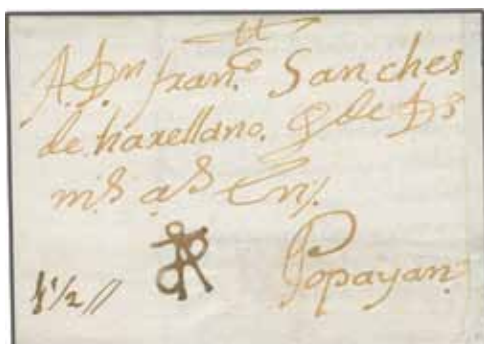 A Dn franco Sanches
de harellano. q de Ds
ms as En
Popayan
1 1/2 //